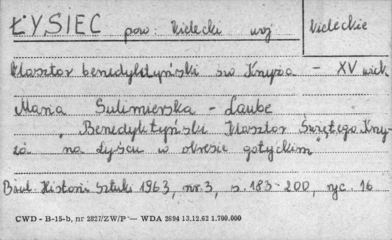 ŁYSIEC pow. kielecki woj kieleckie
Klasztor benedyktyński św Krzyża - XV wiek
Maria Sulimierska - Laube
"Benedyktyński Klasztor Świętego Krzy-
ża na Łyścu w okresie gotyckim"
Biul. Historii Sztuki 1963, nr. 3, s. 183-200, ryc. 16
CWD - B-15-b, nr 2827/ZW/P — WDA 2694 13.12.62 1.700.000